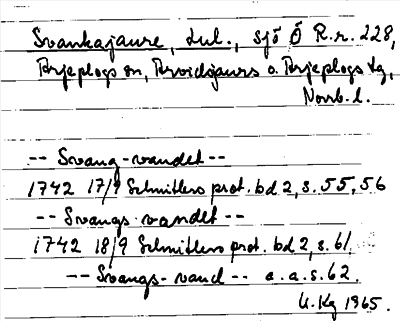 Svankajaure, Lul., sjö Ö R.r. 228,
Arjeplogs sn, Arvidsjaurs o. Arjeplogs tg,
Norrb. l.
-- Svang-vandet --
1742 17/9 Schnitlers prot. bd 2, s. 55, 56
-- Svangs-vandet --
1742 18/9 Schnitlers prot. bd 2, s. 61.
-- Svangs-vand -- a.a.s. 62.
U. Kg 1965.